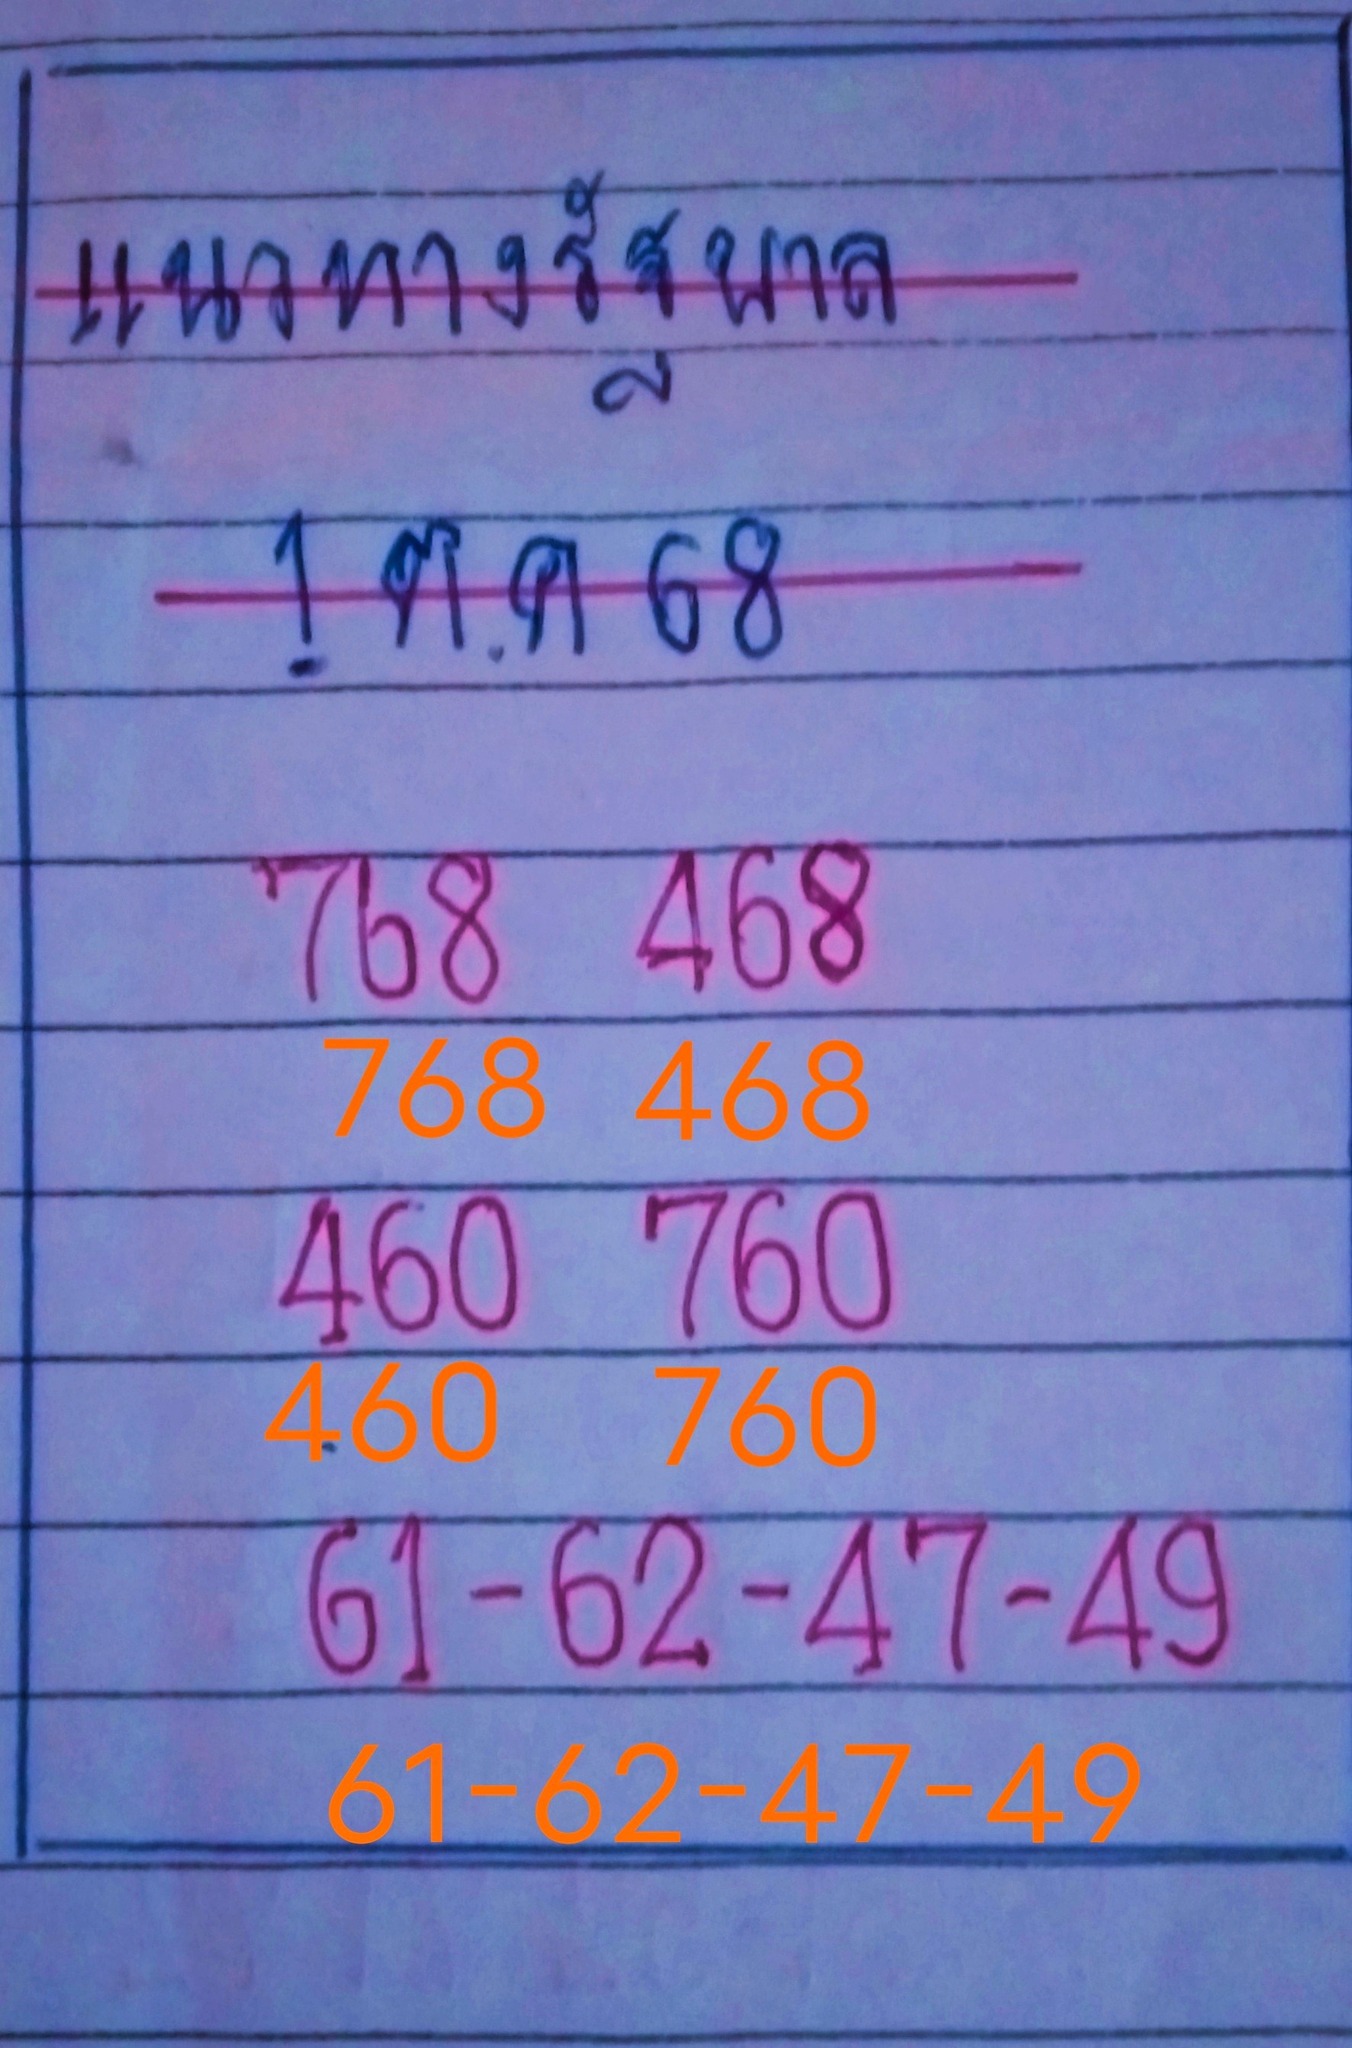 แนวทางรัฐบาล
1 ต.ค 68
768 468
768 468
460 760
460 760
61-62-47-49
61-62-47-49